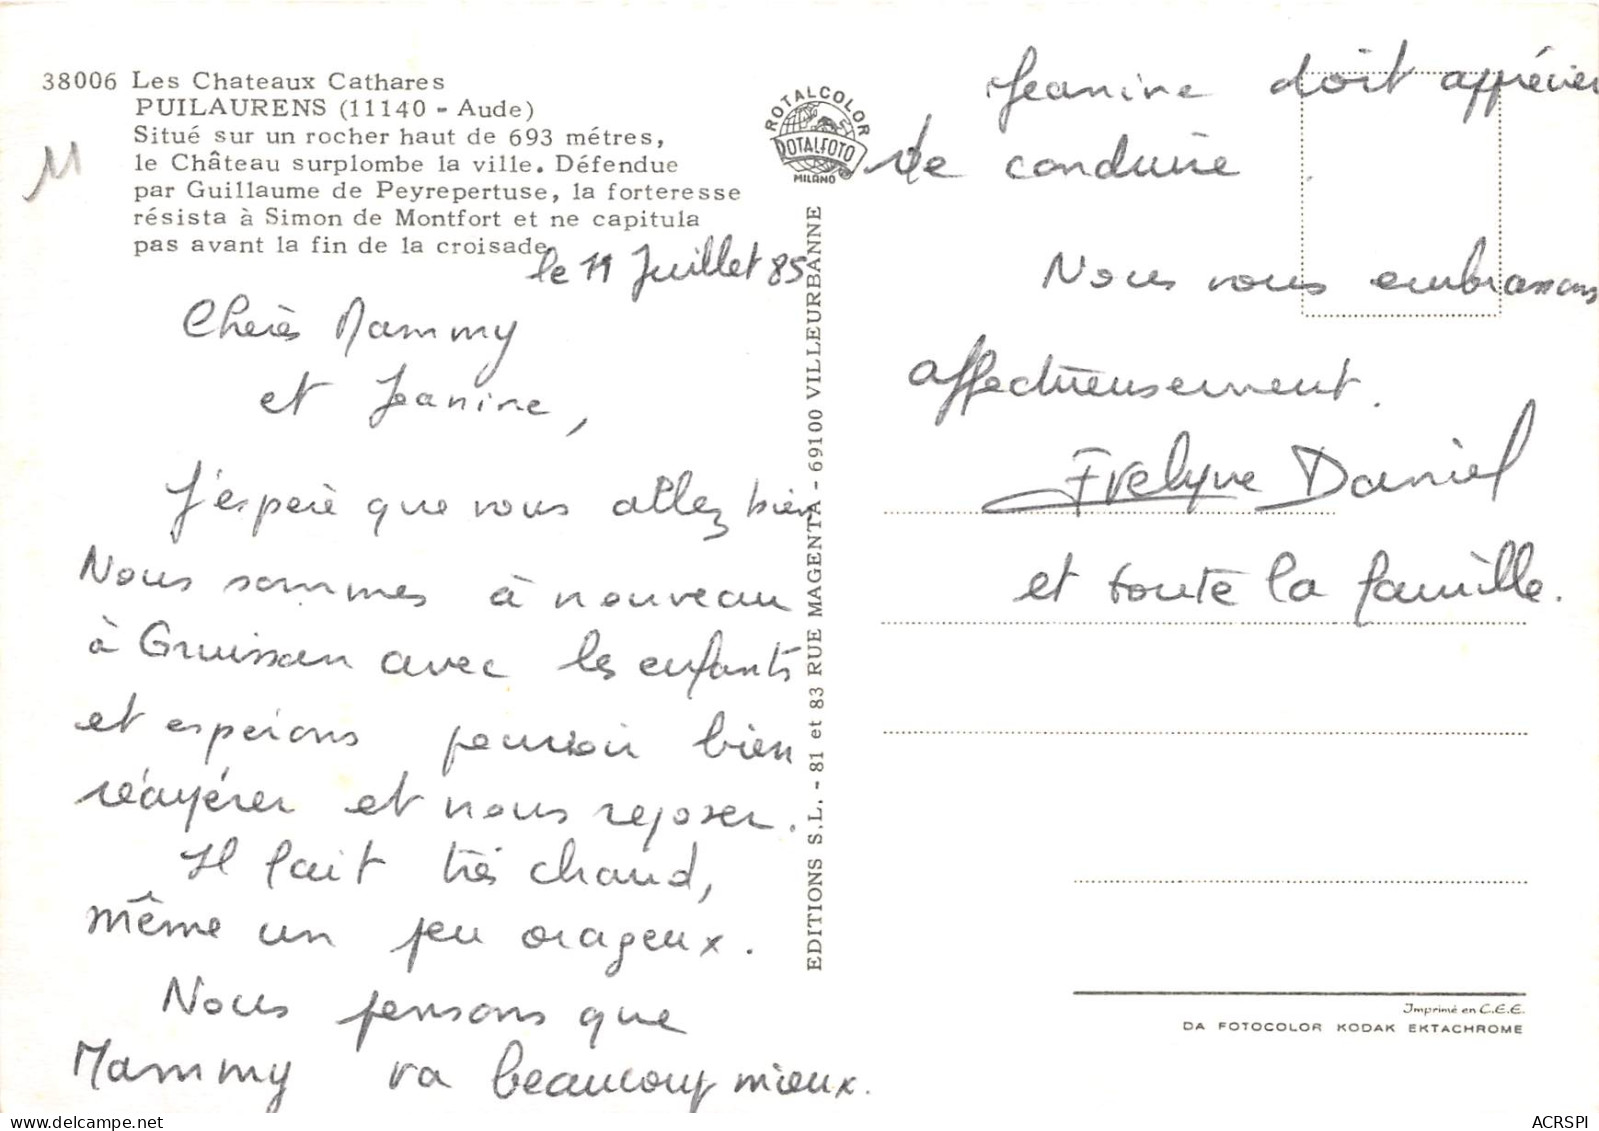 38006 Les Chateaux Cathares
PUILAURENS (11140 - Aude)
Situé sur un rocher haut de 693 métres,
le Château surplombe la ville. Défendue
par Guillaume de Peyrepertuse, la forteresse
résista à Simon de Montfort et ne capitula
pas avant la fin de la croisade
le 11 Juillet 85
Chères Mammy
et Jeanine,
J'espère que vous allez bien
Nous sommes à nouveau
à Gruissan avec les enfants
et espérons pouvoir bien
réayérer et nous reposer.
Il fait très chaud,
même un peu orageux.
Nous pensons que
Mammy va beaucoup mieux.
ROTALCOLOR
ROTALFOTO
MILANO
EDITIONS S.L. - 81 et 83 RUE MAGENTA - 69100 VILLEURBANNE
Jeanine doit apprécier
de conduire
Nous vous embrassons
affectueusement.
Evelyne Daniel
et toute la famille.
Imprimé en C.E.E.
DA FOTOCOLOR KODAK EKTACHROME
ACRSPI